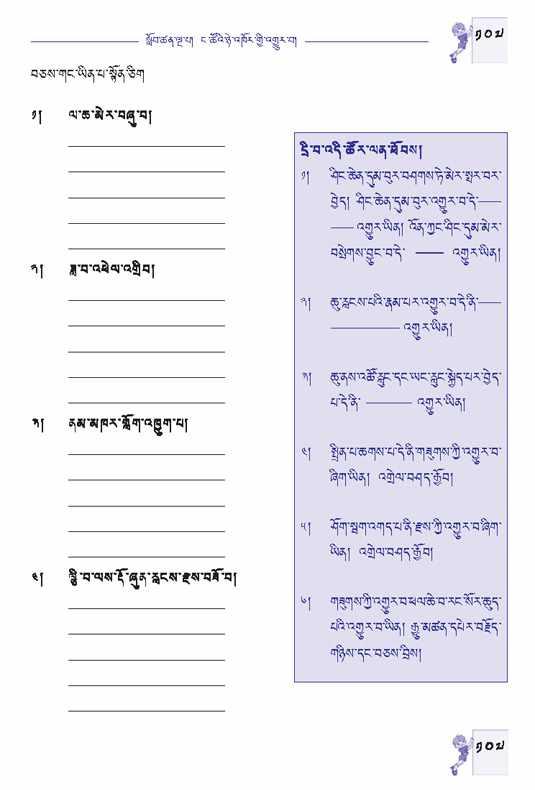 སློབ་ཚན་ལྔ་པ། ང་ཚོའི་ཉེ་འཁོར་གྱི་འགྱུར་བ།
༡༠༧
བཅས་གང་ཡིན་པ་སྟོན་ཅིག
༡། ལ་ཆ་མེར་བཞུ་བ།
༢། ཟླ་བ་འཕེལ་འགྲིབ།
༣། ནམ་མཁར་གློག་འཁྱུག་པ།
༤། ལྕི་བ་ལས་དོ་ཞུན་རླངས་རྫས་བཟོ་བ།
དྲི་བ་འདི་ཚོར་ལན་ཐོབས།
༡། ཤིང་ཆེན་དུམ་བུར་བཤགས་ཏེ་མེར་སྤར་བར་
བྱེད། ཤིང་ཆེན་དུམ་བུར་འགྱུར་བ་དེ་
འགྱུར་ཡིན། འོན་ཀྱང་ཤིང་དུམ་མེར་
བསྲེགས་བྱུང་བ་དེ་ འགྱུར་ཡིན།
༢། ཆུ་རླངས་པའི་རྣམ་པར་འགྱུར་བ་དེ་ནི་
འགྱུར་ཡིན།
༣། ཆུ་ནས་འཚོ་རླུང་དང་ཡང་རླུང་སྐྱེད་པར་བྱེད་
པ་དེ་ནི་ འགྱུར་ཡིན།
༤། སྤྲིན་པ་ཆགས་པ་དེ་ནི་གཟུགས་ཀྱི་འགྱུར་བ་
ཞིག་ཡིན། འགྲེལ་བཤད་རྒྱོབ།
༥། ཤོག་སྦག་འགད་པ་ནི་རྫས་ཀྱི་འགྱུར་བ་ཞིག་
ཡིན། འགྲེལ་བཤད་རྒྱོབ།
༦། གཟུགས་ཀྱི་འགྱུར་བ་ཕལ་ཆེ་བ་རང་སོར་ཆུད་
པའི་འགྱུར་བ་ཡིན། རྒྱུ་མཚན་དཔེར་བརྗོད་
གཉིས་དང་བཅས་བྲིས།
༡༠༧